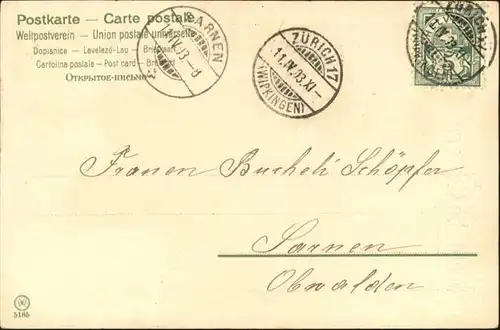 Postkarte — Carte postale
Weltpostverein — Union postale universelle
Dopisnice — Levelező-Lap — Briefkaart
Cartolina postale — Post card — Brevkort
Открытое письмо
SARNEN
ZÜRICH 17
11.IV.03.XI—
(WIPKINGEN)
Frauen Bucheli Schöpfer
Sarnen
Obwalden
5185